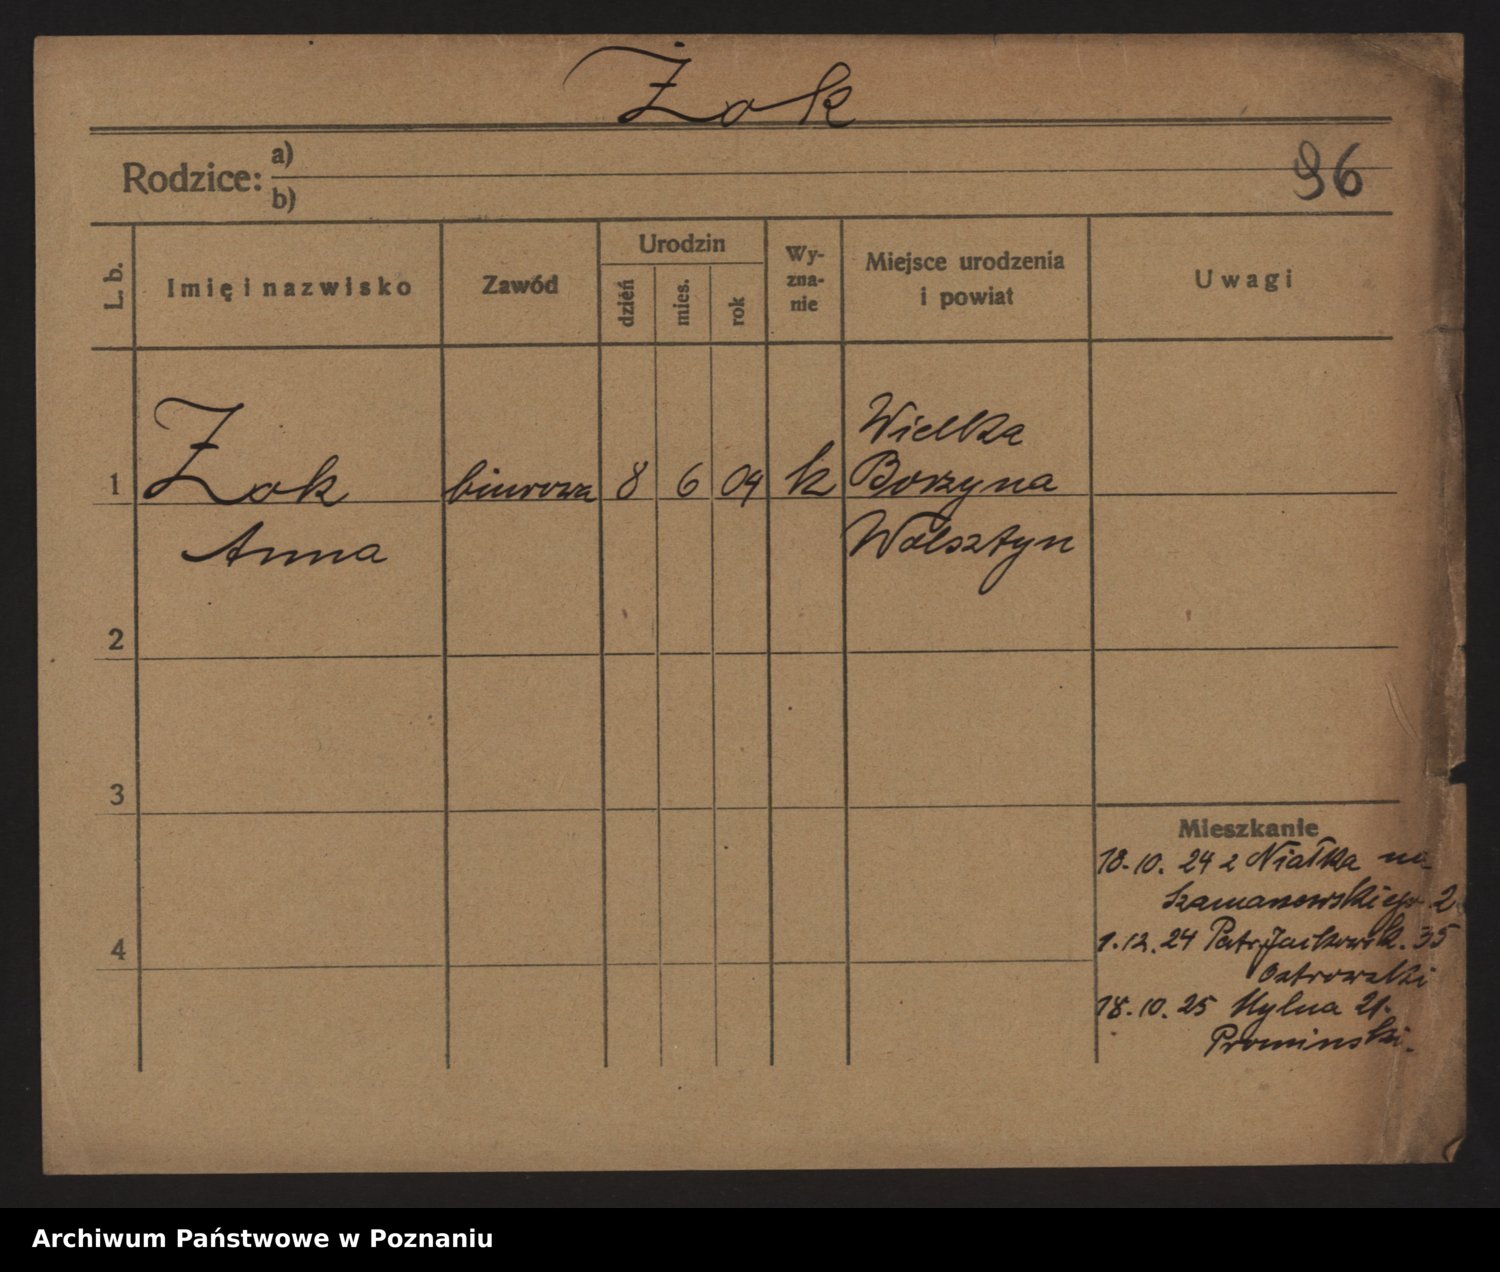 Żok
Rodzice: a)
b)
96
L. b.
Imię i nazwisko
Zawód
Urodzin
dzień
mies.
rok
Wy-
zna-
nie
Miejsce urodzenia
i powiat
Uwagi
1
Żok
Anna
biurowa
8
6
04
k
Wielka
Borzyna
Wolsztyn
2
3
4
Mieszkanie
18.10. 24 z Niałka na
Szamarzewskiego 2
1.12.24 Patr. Jackowsk. 35
Ostrowski
18.10.25 Mylna 21.
Promiński.
Archiwum Państwowe w Poznaniu